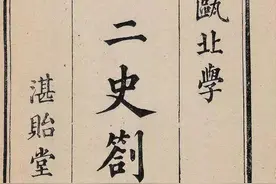 甌北學
二史劄
湛貽堂